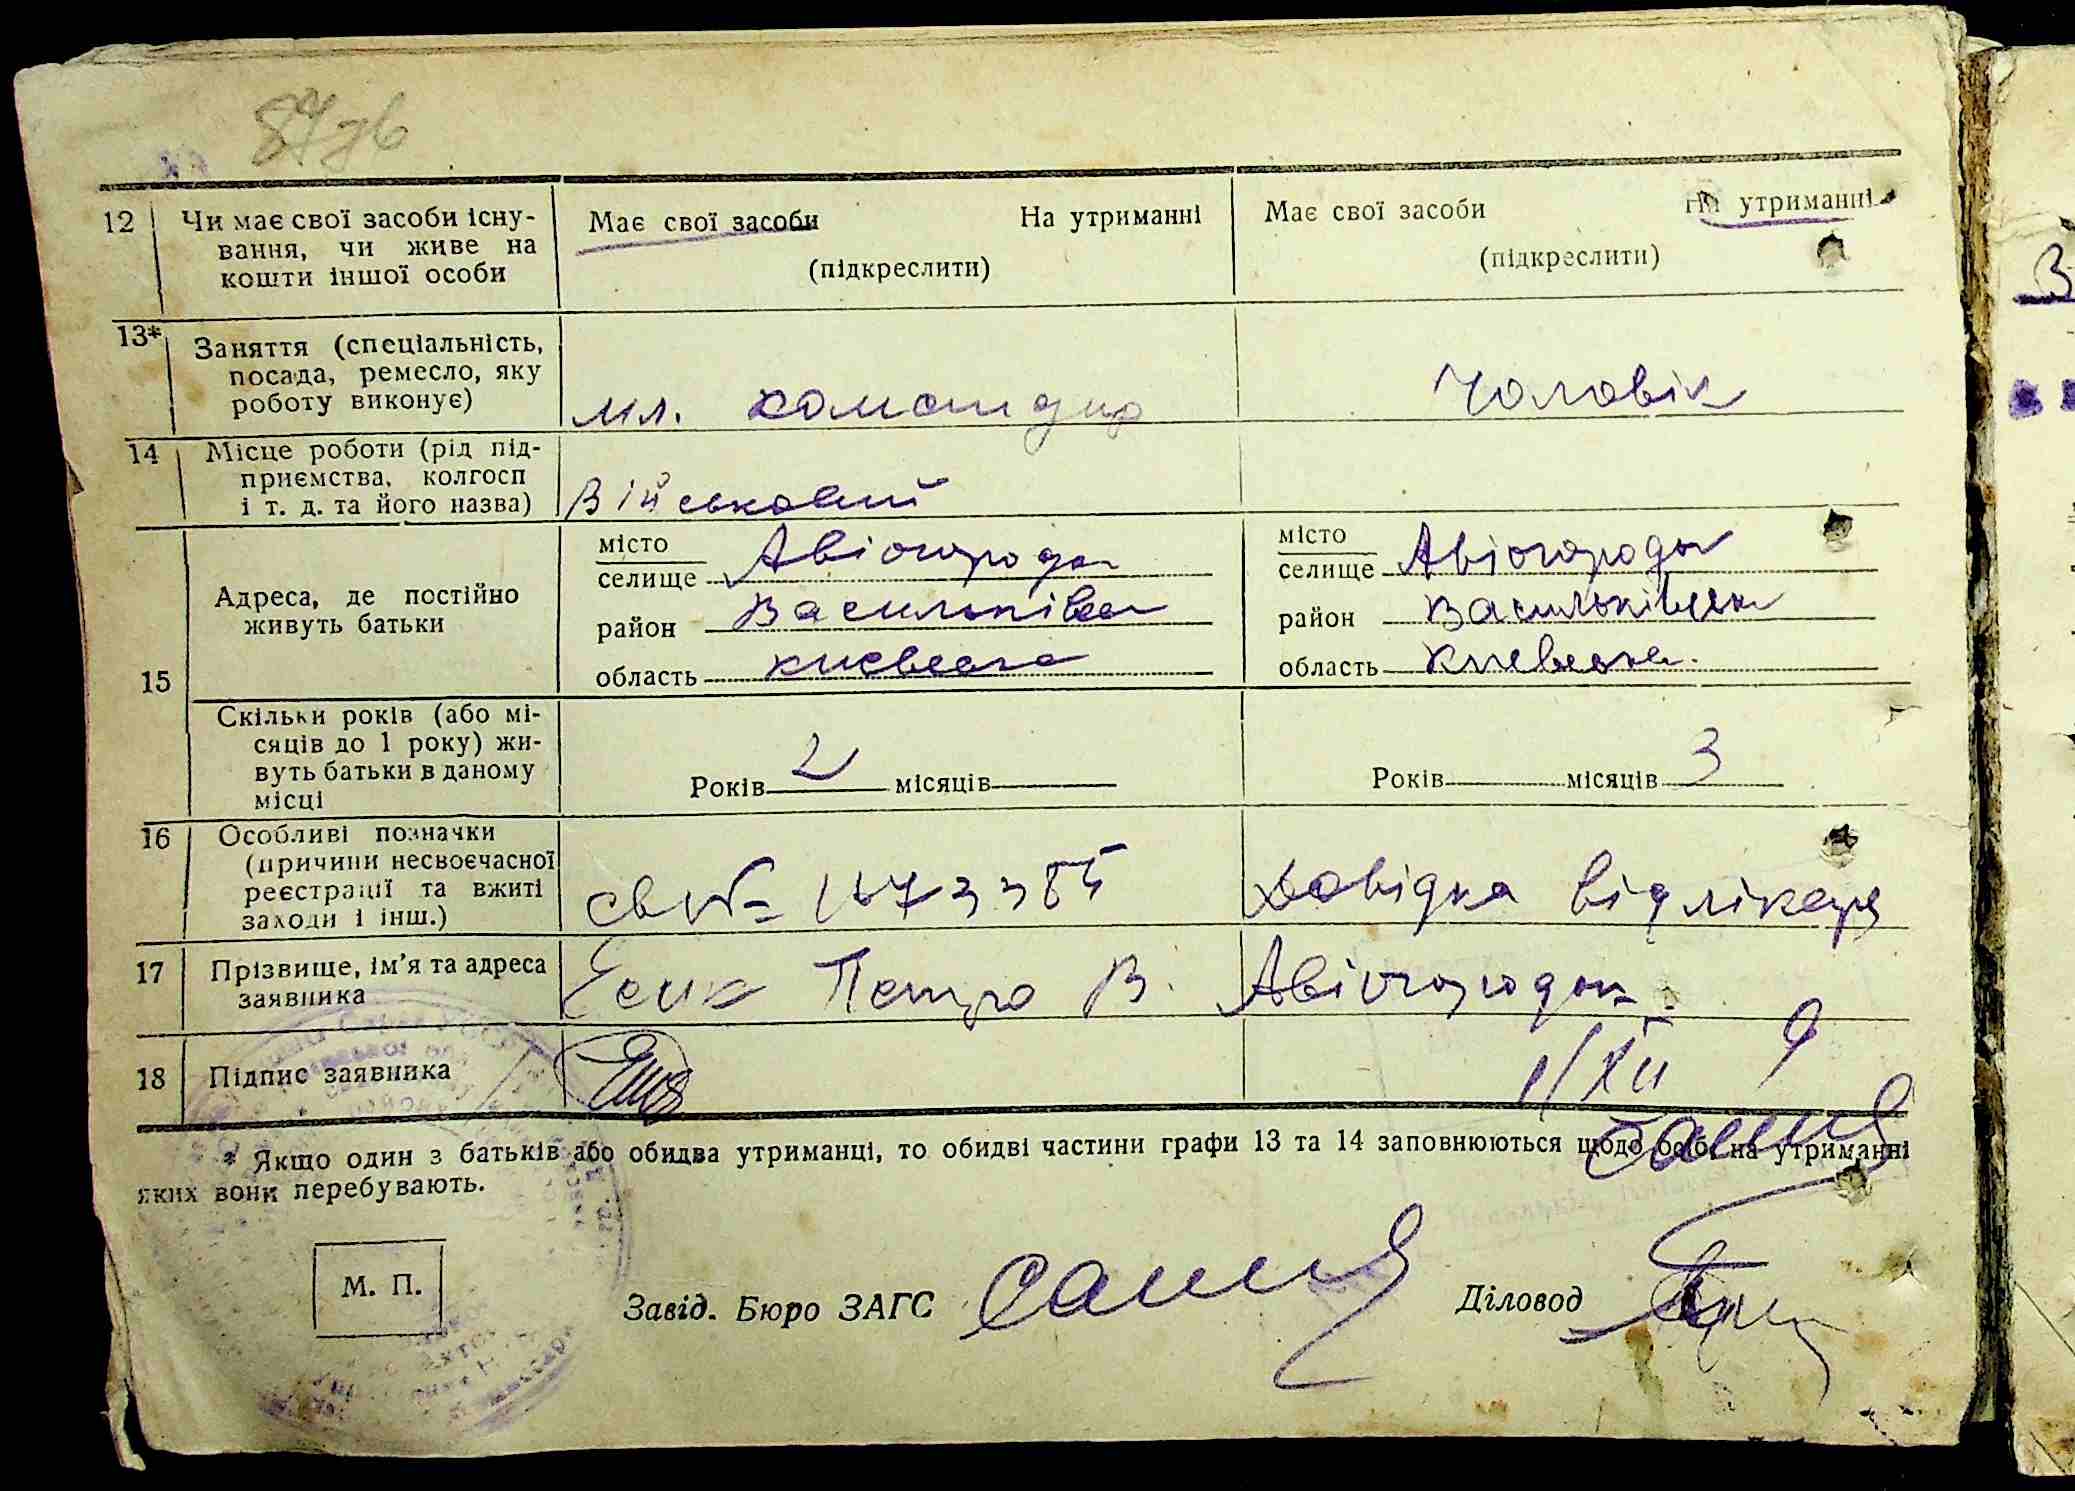 12 Чи має свої засоби існу-
вання, чи живе на
кошти іншої особи
Має свої засоби На утриманні
(підкреслити)
Має свої засоби На утриманні
(підкреслити)
13* Заняття (спеціальність,
посада, ремесло, яку
роботу виконує)
мл. командир
Чоловік
14 Місце роботи (рід під-
приємства, колгосп
і т. д. та його назва)
Військовий
15
Адреса, де постійно
живуть батьки
місто
селище Авіогородок
район Васильків
область київська
місто
селище Авіогородок
район Васильківськ
область Київська
Скільки років (або мі-
сяців до 1 року) жи-
вуть батьки в даному
місці
Років 2 місяців
Років місяців 3
16 Особливі позначки
(причини несвоєчасної
реєстрації та вжиті
заходи і інш.)
Довідка від лікаря
17 Прізвище, ім'я та адреса
заявника
Петро В. Авіогородок
18 Підпис заявника
1/XII 9
* Якщо один з батьків або обидва утриманці, то обидві частини графи 13 та 14 заповнюються щодо осіб, на утриманні
яких вони перебувають.
М. П.
Завід. Бюро ЗАГС
Діловод